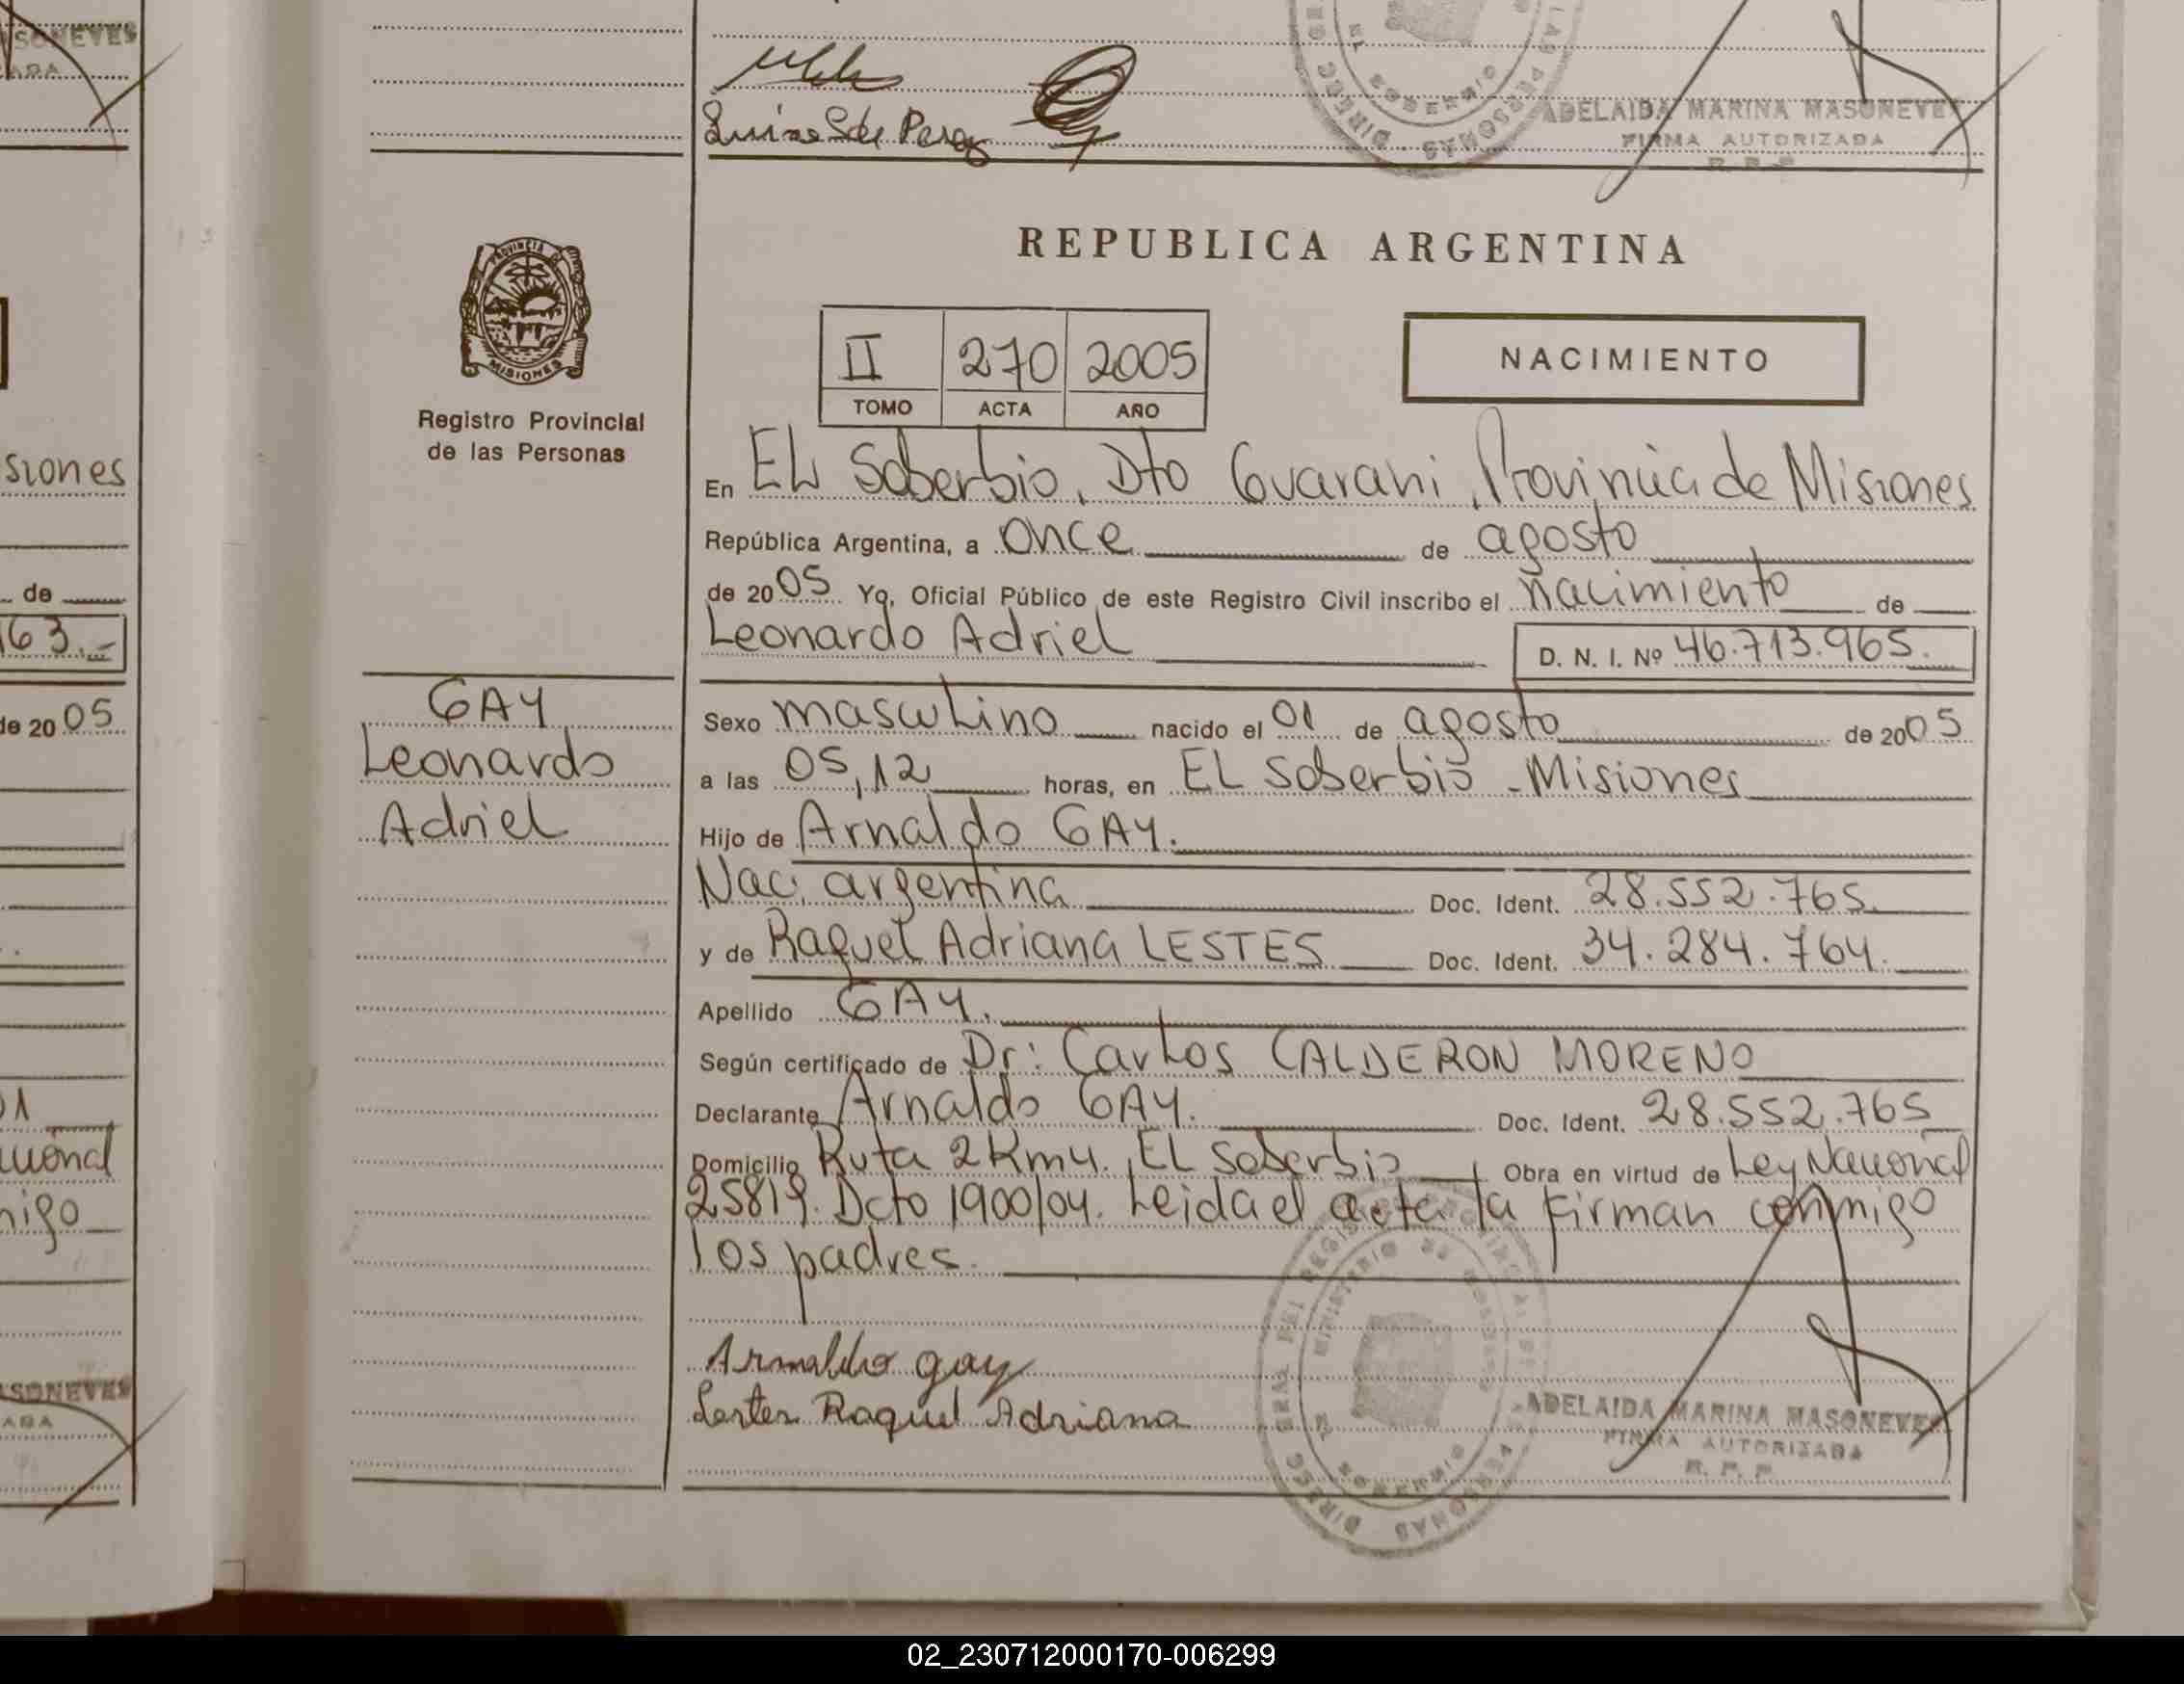 SONEVES
siones
de
163.-
de 20 05
nigo
SONEVES
Luisa S de Perez
ADELAIDA MARINA MASONEVES
FIRMA AUTORIZADA
R. P. P.
PROVINCIA DE MISIONES
Registro Provincial
de las Personas
REPUBLICA ARGENTINA
II 270 2005
TOMO ACTA AÑO
NACIMIENTO
En EL Soberbio, Dto Guarani, Provincia de Misiones
República Argentina, a once de agosto
de 2005 Yo, Oficial Público de este Registro Civil inscribo el nacimiento de
Leonardo Adriel D. N. I. Nº 46.713.965.
GAY
Leonardo
Adriel
Sexo masculino nacido el 01 de agosto de 2005
a las 05,12 horas, en EL Soberbio - Misiones
Hijo de Arnaldo GAY.
Nac. argentina Doc. Ident. 28.552.765.
y de Raquel Adriana LESTES Doc. Ident. 34.284.764.
Apellido GAY.
Según certificado de Dr: Carlos CALDERON MORENO
Declarante Arnaldo GAY. Doc. Ident. 28.552.765
Domicilio Ruta 2 Km 4. EL Soberbio Obra en virtud de Ley Nacional
25819. Dcto 1900/04. Leida el acta la firman conmigo
los padres.
Arnaldo gay
Lestes Raquel Adriana
ADELAIDA MARINA MASONEVES
FIRMA AUTORIZADA
R. P. P.
02_230712000170-006299